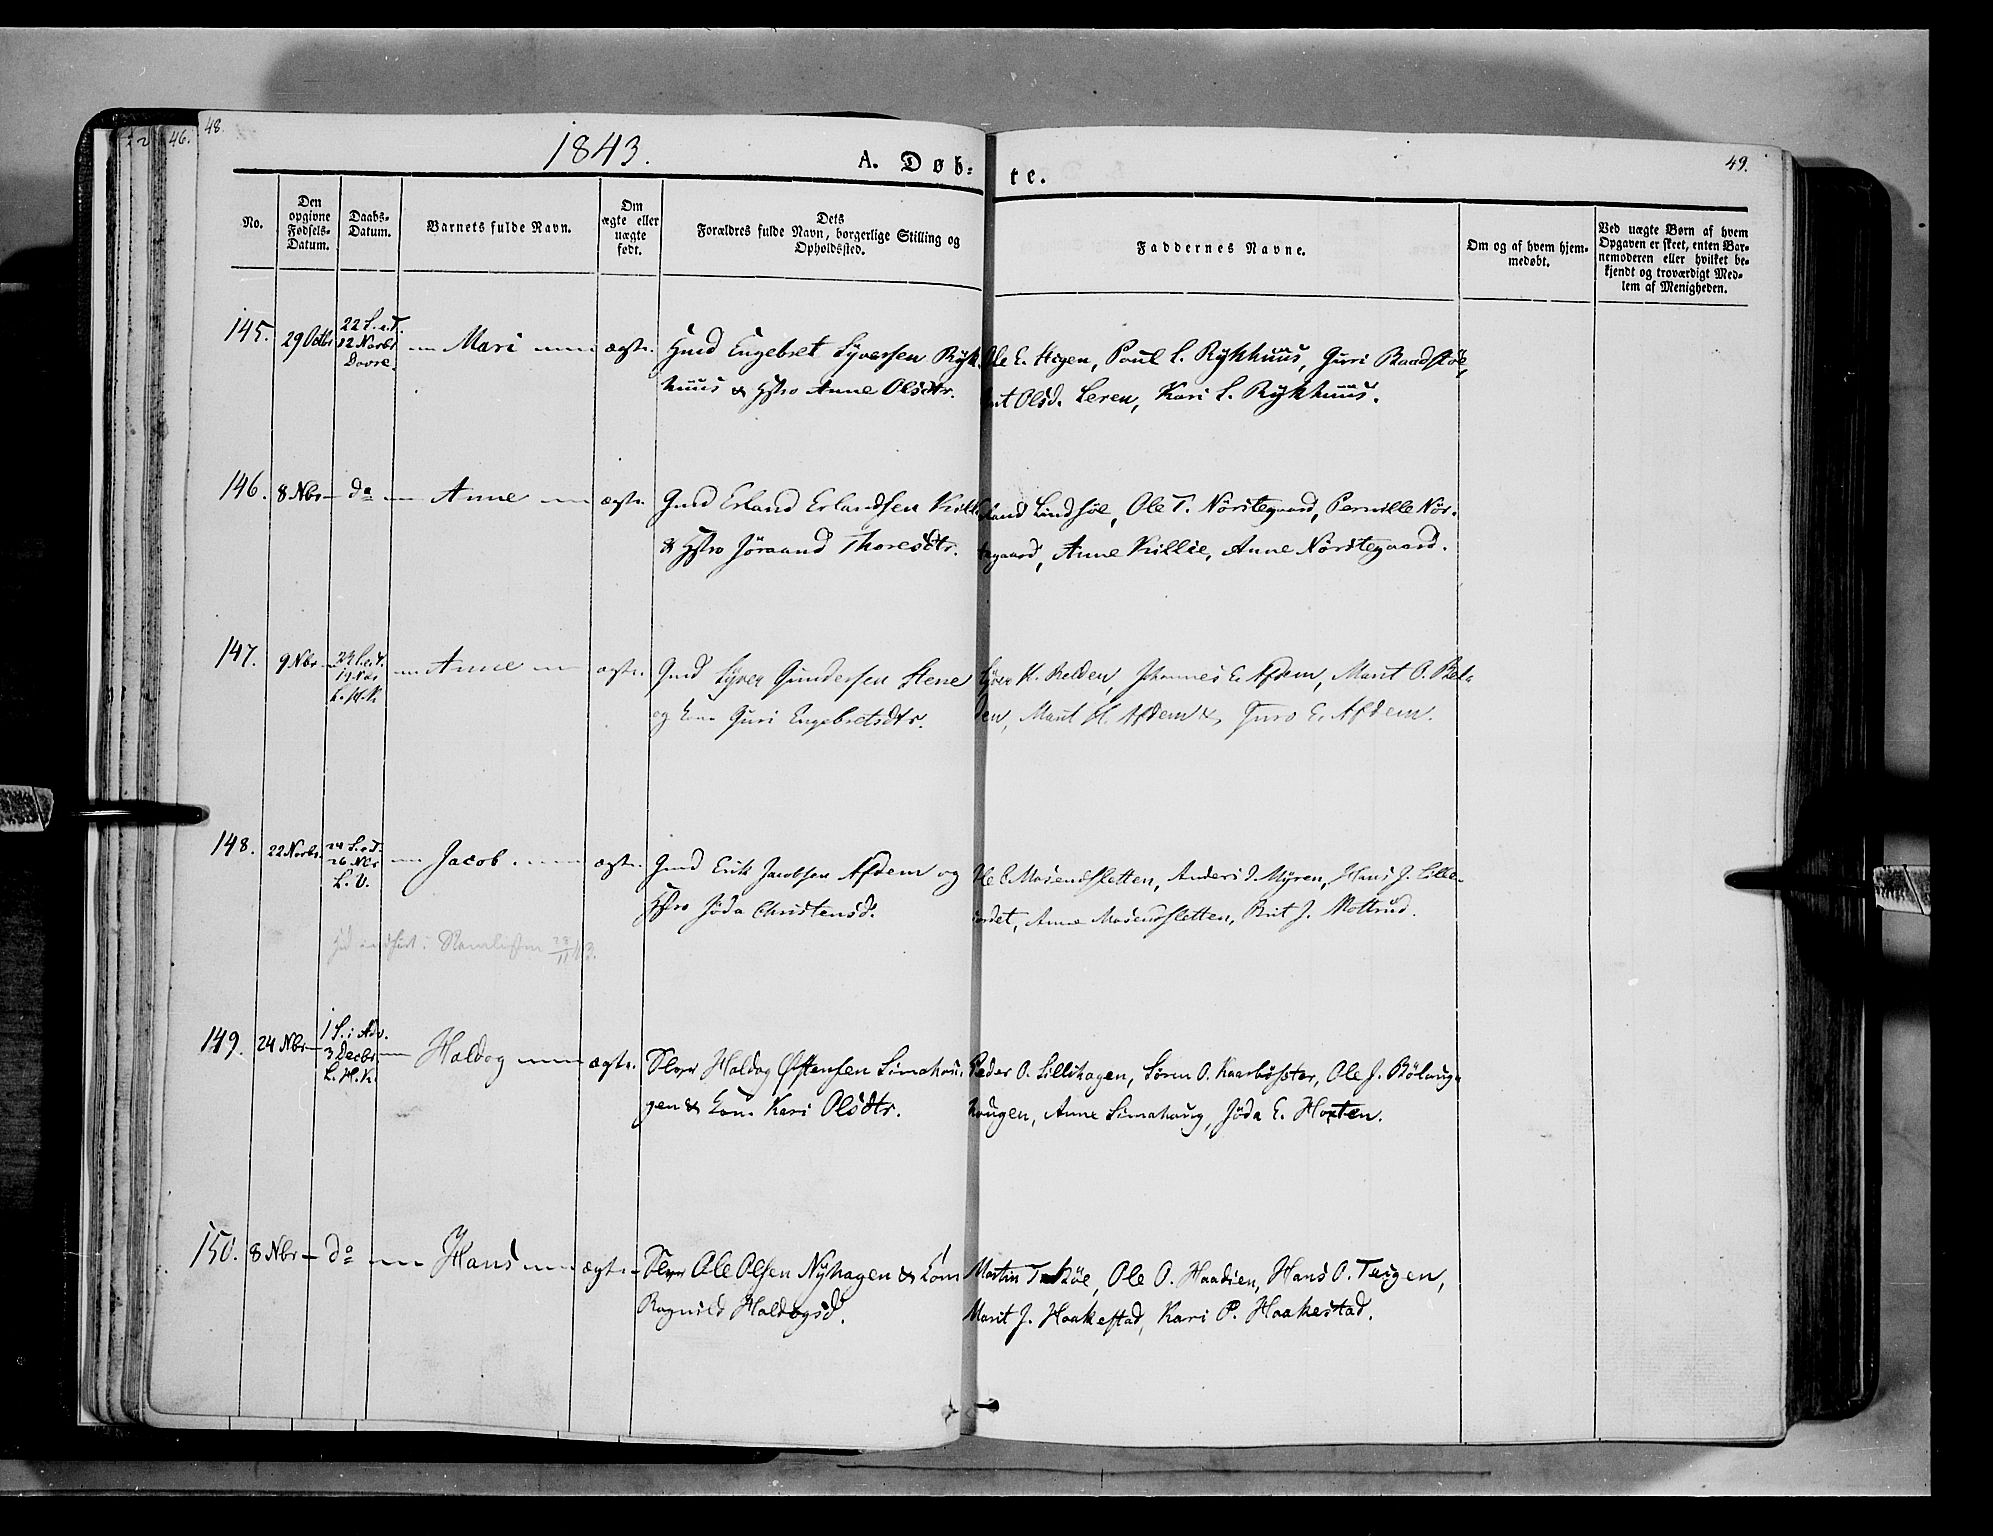 46.
48.
1843.
A. Døb-
te.
49.
No.
Den
opgivne
Fødsels-
Datum.
Daabs-
Datum.
Barnets fulde Navn.
Om
ægte eller
uægte
født.
Dets
Forældres fulde Navn, borgerlige Stilling og
Opholdssted.
Faddernes Navne.
Om og af hvem hjem-
medøbt.
Ved uægte Børn af hvem
Opgaven er skeet, enten Bar-
nemoderen eller hvilket be-
kjendt og troværdigt Med-
lem af Menigheden.
145.
29 Octbr
22 S. e. T.
12 Novbr
Dovre.
Mari
ægte.
Gmd Engebret Syversen Ryk-
huus & Hstro Anne Olsdtr.
Ole E. Higen, Poul L. Rykhuus, Guri Baadstøe,
Brit Olsd. Leren, Kari L. Rykhuus.
146.
8 Nbr
do
Anne
ægte.
Gmd Erland Erlandsen Killi
& Hstro Jøraand Thoresdtr.
Lindsøe, Ole T. Nörstegaard, Pernille Nör-
stegaard, Anne Killie, Anne Nörstegaard.
147.
9 Nbr
L. H. K
Anne
ægte.
Gmd Syver Gundersen Stene
og Kone Guri Engebretsdtr.
Syver K. Belden, Johannes E. Afdem, Marit O. Bel-
den, Marit H. Afdem &, Guro E. Afdem.
148.
22 Novbr.
24 S. e. T.
26 Nbr
L. V.
Jacob.
ægte.
Gmd Erik Jacobsen Afdem og
Hstro Jöda Christensd.
Mosendsletten, Anders I. Myren, Hans J. Lille-
jordet, Anne Mosendsletten, Brit J. Mottrud.
28/11 43.
149.
24 Nbr
1 S. i Adv.
3 Decbr
L. H. K.
Haldog
ægte.
Haldog Østensen Simahou-
gen & Kone Kari Olsdtr.
Peder O. Lillehagen, Sören O. Kaarbösster, Ole J. Bölaug-
hougen, Anne Simahaug, Jöda E. Horten.
150.
8 Nbr
do
Hans
ægte
Ole Olsen Nyhagen & Kone
Ragnild Haldogsd.
Martin Taksöe, Ole O. Haadien, Hans O. Teigen,
Marit J. Haakestad, Kari P. Haakestad.